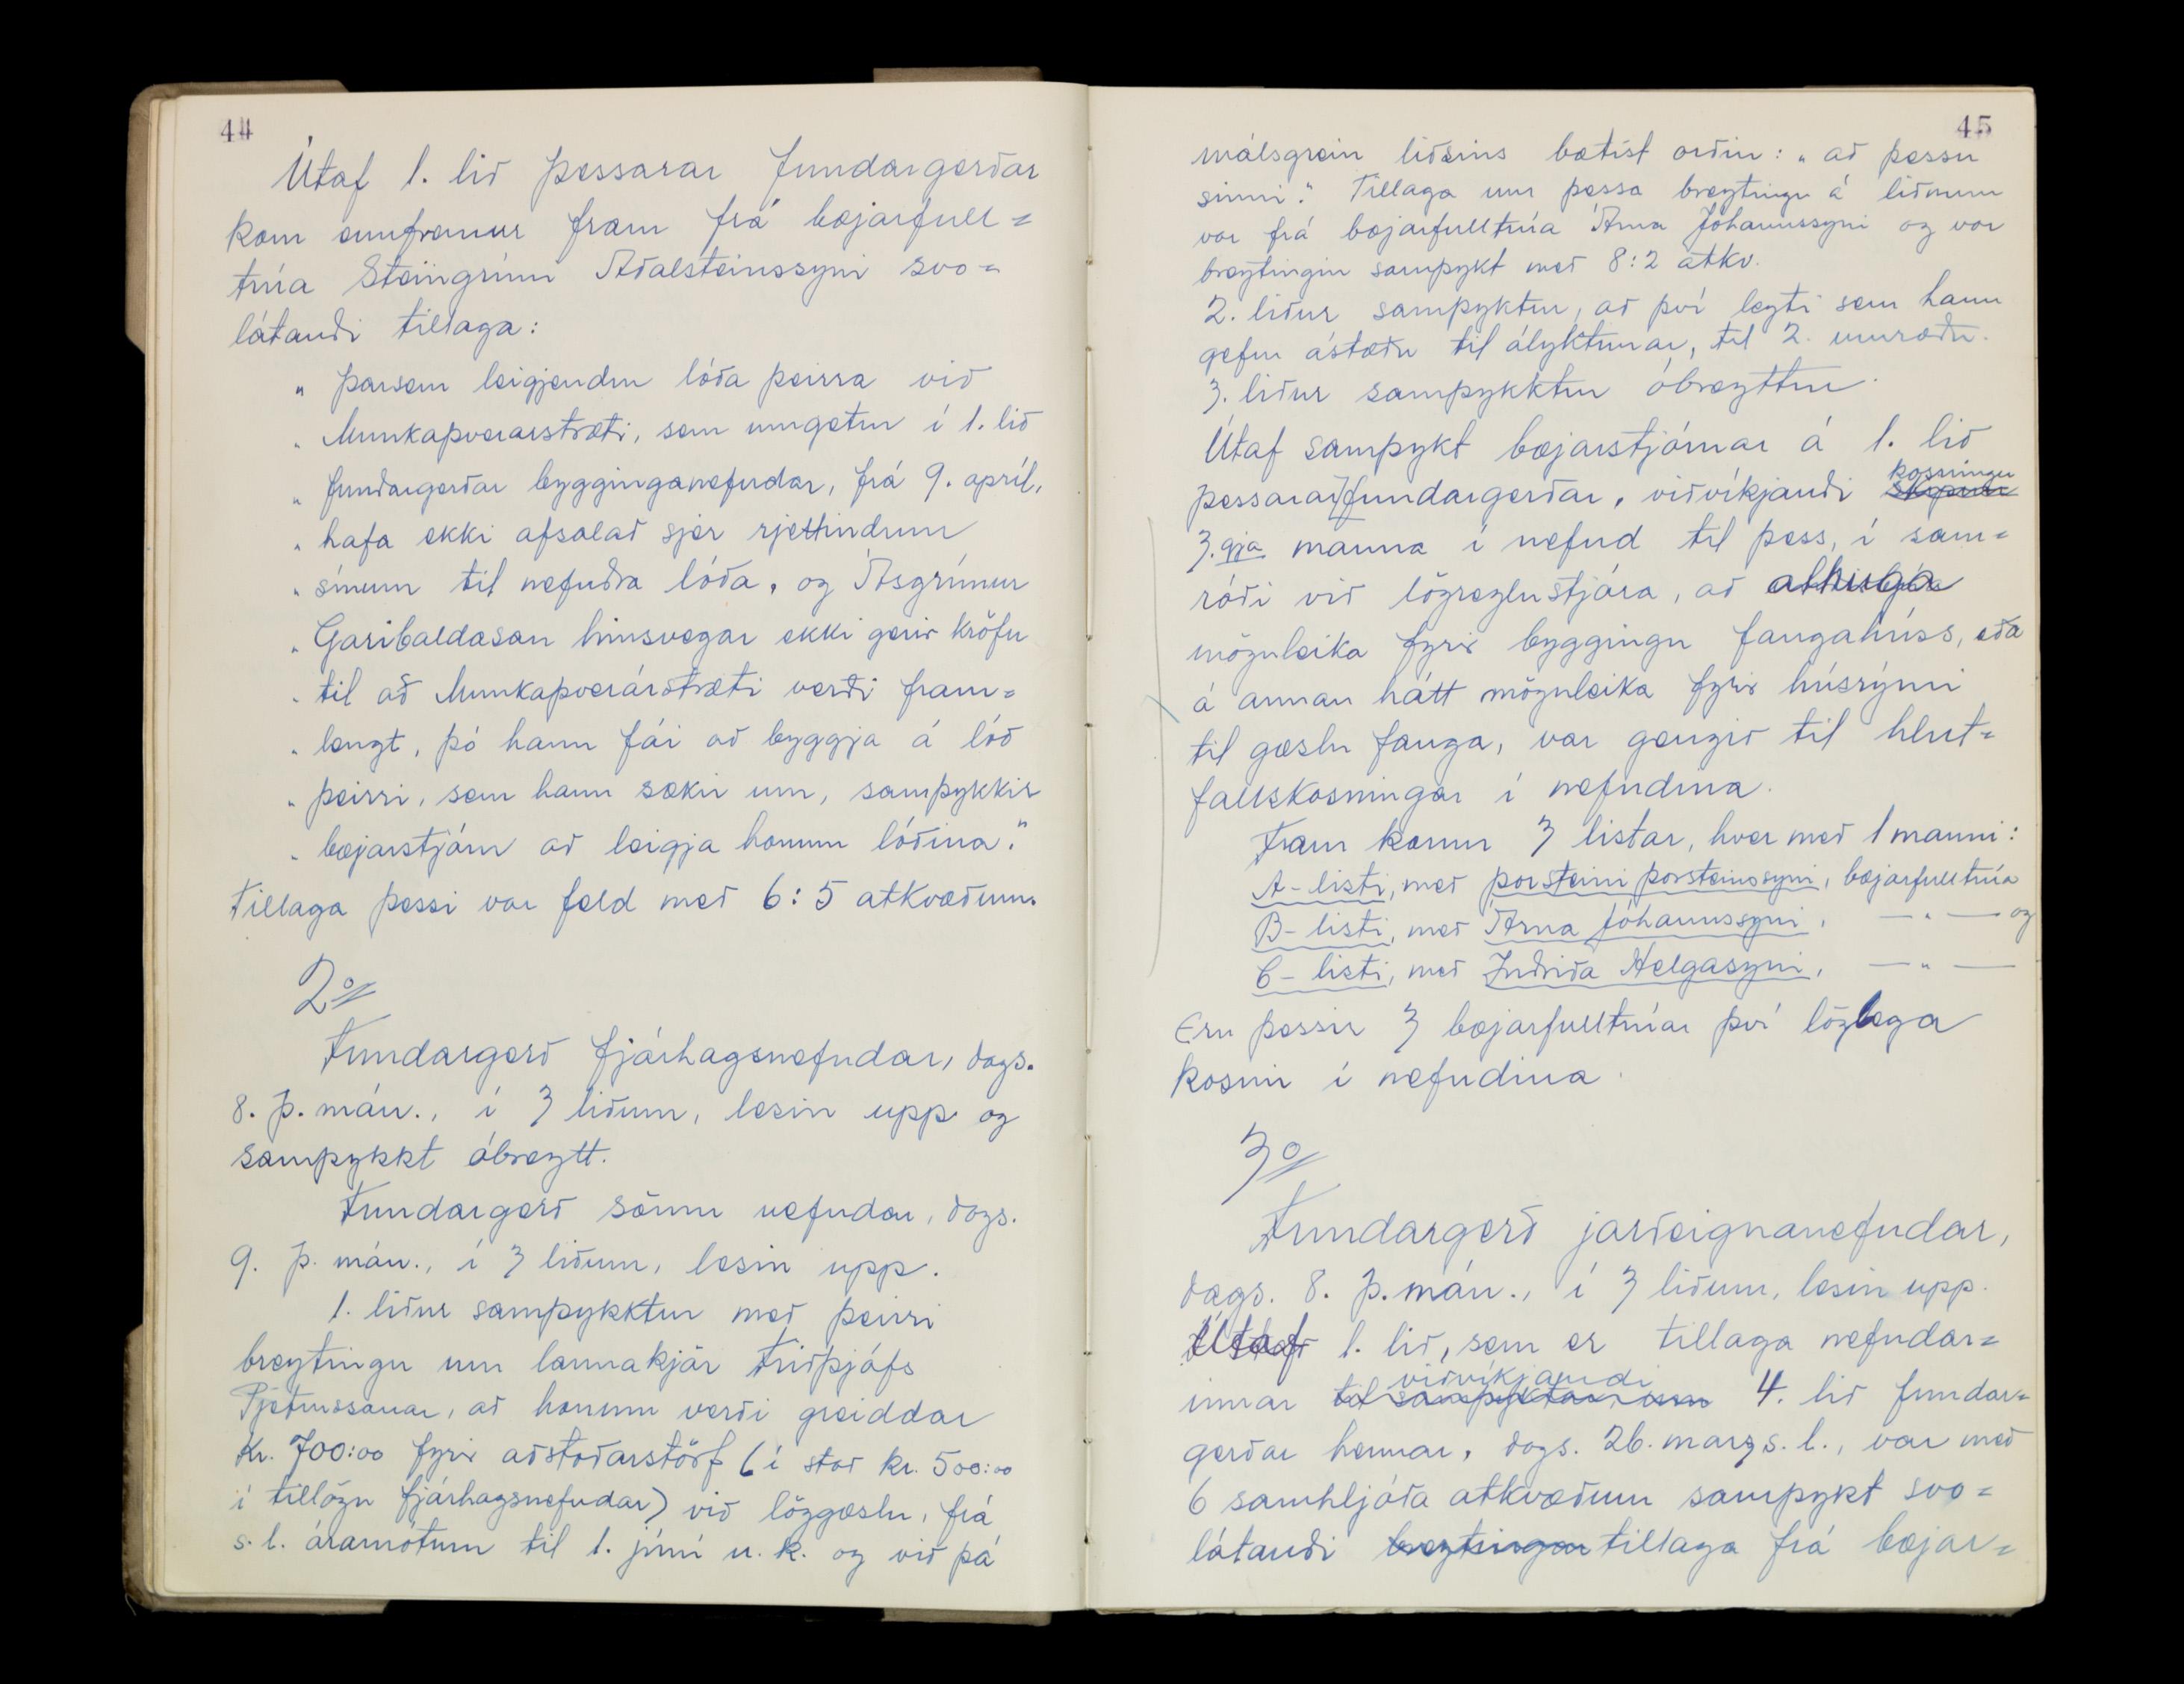 44
Útaf 1. lið þessarar fundargerðar
kom ennfremur fram frá bæjarfull=
trúa Steingrími Aðalsteinssyni svo=
látandi tillaga:
" Þarsem leigjendur lóða þeirra við
" Munkaþverárstræti, sem umgetur í 1. lið
" fundargerðar bygginganefndar, frá 9. apríl,
" hafa ekki afsalað sjer rjettindum
" sínum til nefndra lóða, og Ásgrímur
" Garibaldason hinsvegar ekki gerir kröfu
" til að Munkaþverárstræti verði fram=
" lengt, þó hann fái að byggja á lóð
" þeirri, sem hann sækir um, samþykkir
" bæjarstjórn að leigja honum lóðina."
Tillaga þessi var feld með 6:5 atkvæðum.
2º
Fundargerð fjárhagsnefndar, dags.
8. þ. mán., í 3 liðum, lesin upp og
samþykkt óbreytt.
Fundargerð sömu nefndar, dags.
9. þ. mán., í 3 liðum, lesin upp.
1. liður samþykktur með þeirri
breytingu um launakjör Friðþjófs
Pjeturssonar, að honum verði greiddar
kr. 700:00 fyrir aðstoðarstörf (í stað kr. 500:00
í tillögu fjárhagsnefndar) við löggæslu, frá
s. l. áramótum til 1. júní n. k. og við þá
45
málsgrein liðsins bætist orðin: "að þessu
sinni". Tillaga um þessa breytingu á liðnum
var frá bæjarfulltrúa Árna Jóhannssyni og var
breytingin samþykt með 8:2 atkv.
2. liður samþyktur, að því leyti sem hann
gefur ástæðu til ályktunar, til 2. umræðu.
3. liður samþykktur óbreyttur.
Útaf samþykt bæjarstjórnar á 1. lið
kosningu
þessarar fundargerðar, viðvíkjandi skipun
3.gja manna í nefnd til þess, í sam=
ráði við lögreglustjóra, að athuga
möguleika fyrir byggingu fangahúss, eða
á annan hátt möguleika fyrir húsrými
til gæslu fanga, var gengið til hlut=
fallskosningar í nefndina.
Fram komu 3 listar, hver með 1 manni:
A-listi, með Þorsteini Þorsteinssyni, bæjarfulltrúa
B-listi, með Árna Jóhannssyni, —"— og
C-listi, með Indriða Helgasyni, —"—
Eru þessir 3 bæjarfulltrúar því löglega
kosnir í nefndina.
3º
Fundargerð jarðeignanefndar,
dags. 8. þ. mán., í 3 liðum, lesin upp.
Útaf 1. lið, sem er tillaga nefndar=
viðvíkjandi
innar til samþyktar um 4. lið fundar=
gerðar hennar, dags. 26. marz s. l., var með
6 samhljóða atkvæðum samþykt svo=
látandi breytingar tillaga frá bæjar=